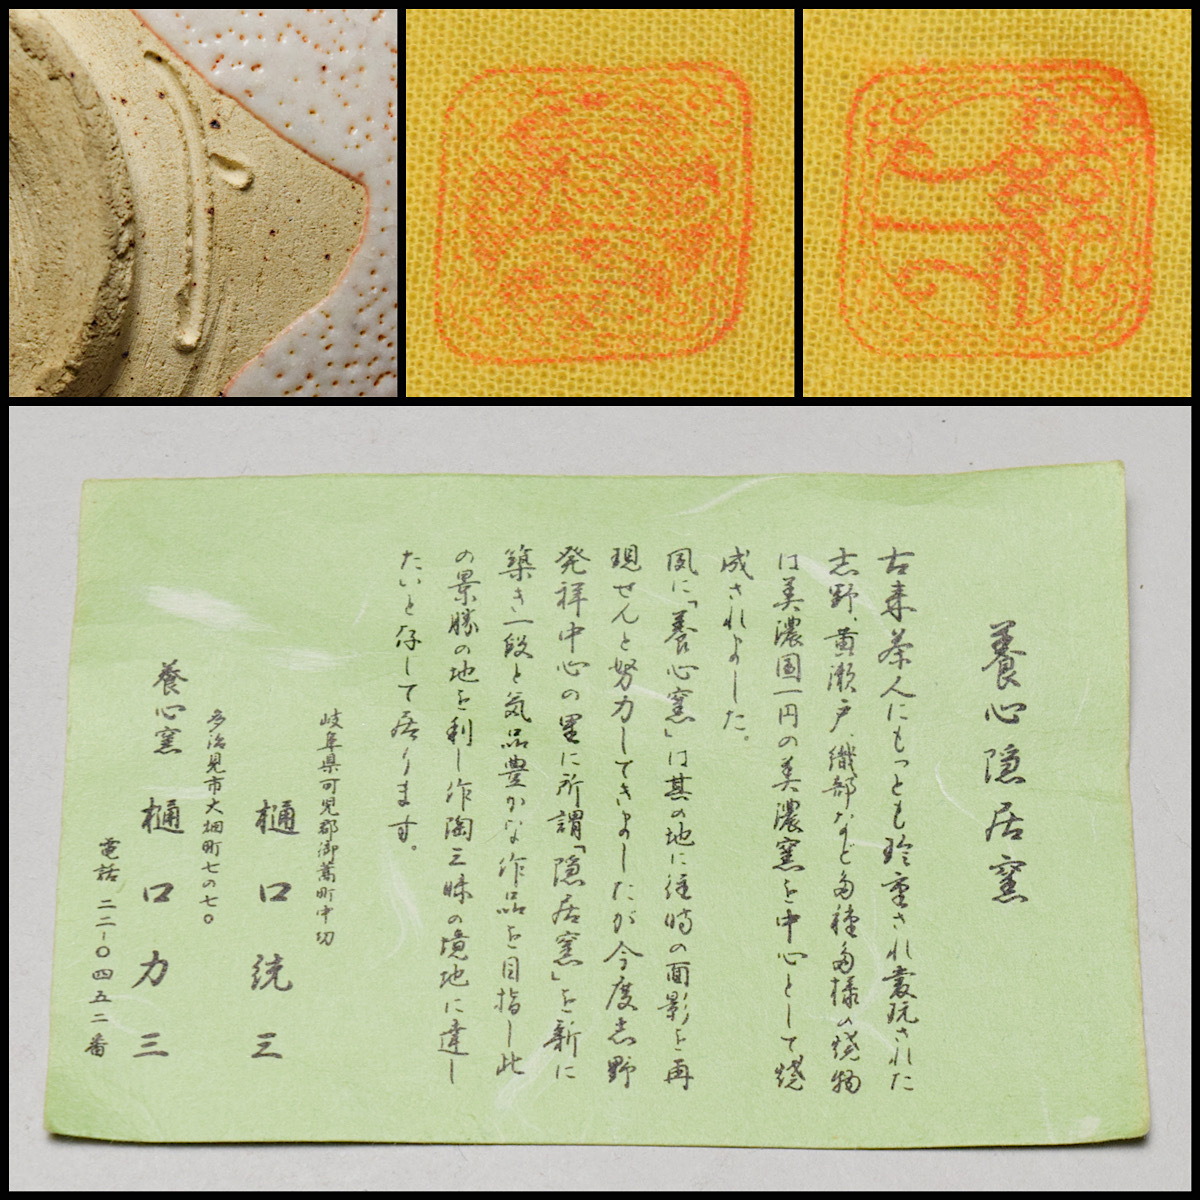 養心隠居窯
古来茶人にもっとも珍重され愛玩された
志野、黄瀬戸、織部など多種多様の焼物
は美濃国一円の美濃窯を中心として焼
成されました。
風に「養心窯」は其の地に往時の面影を再
現せんと努力してきましたが今度志野
発祥中心の里に所謂「隠居窯」を新に
築き一段と気品豊かな作品を目指し此
の景勝の地を利し作陶三昧の境地に達し
たいと存して居ります。
岐阜県可児郡御嵩町中切
樋口統三
多治見市大畑町七の七〇
養心窯 樋口力三
電話 二二-〇四五二番